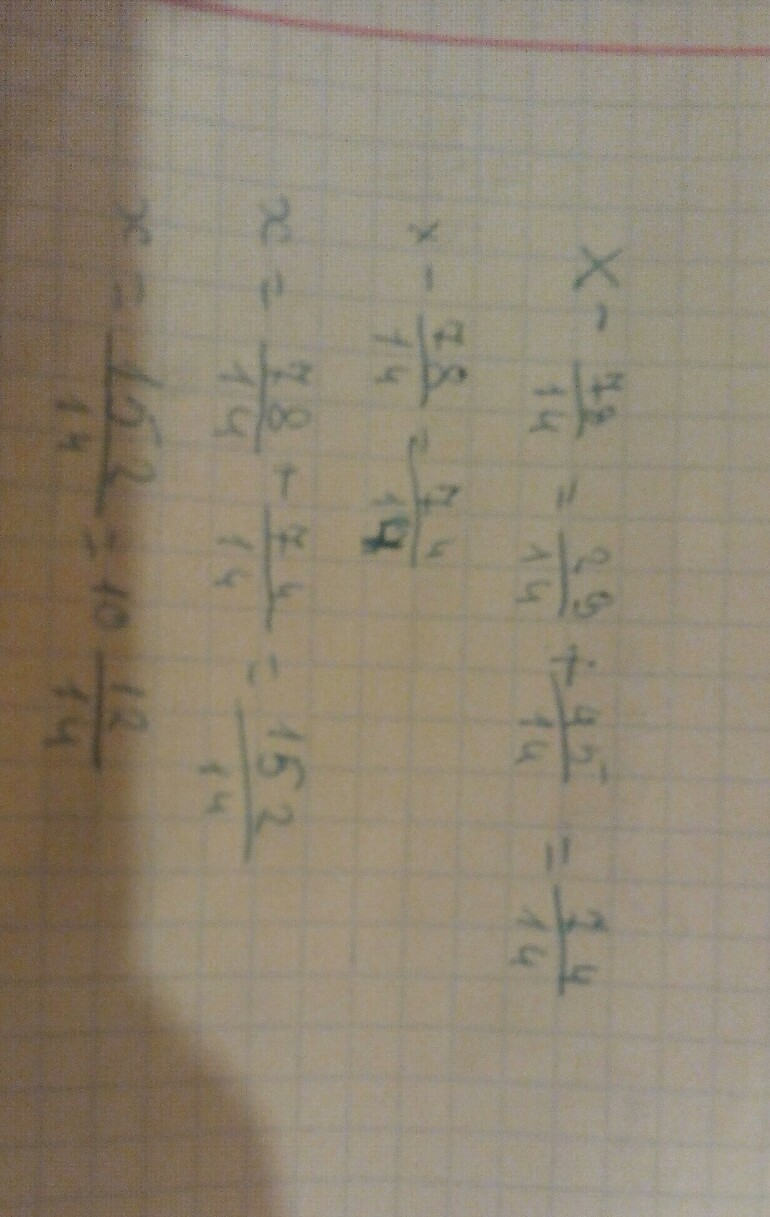 x - 78/14 = 29/14 + 45/14 = 74/14
x - 78/14 = 74/14
x = 78/14 + 74/14 = 152/14
x = 152/14 = 10 12/14